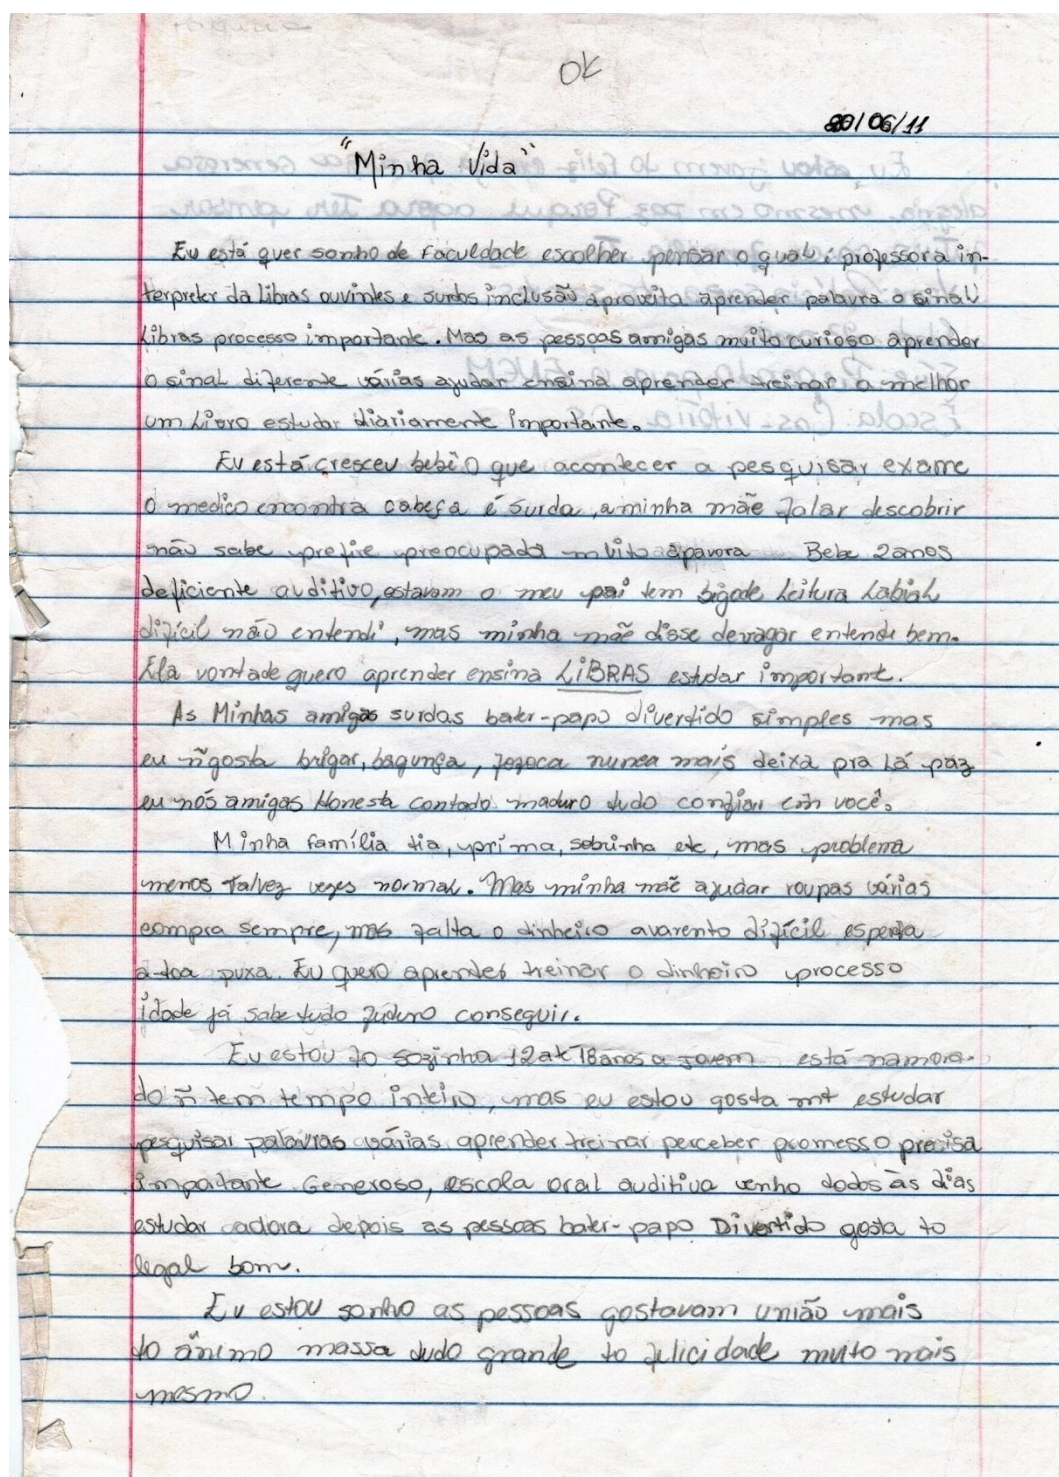 OK
20/06/11
"Minha Vida"
Eu está quer sonho de Faculdade escolher pensar o qual: professora in-
terpreter da libras ouvintes e surdos inclusão aproveita aprender palavra o sinal
Libras processo importante. Mas as pessoas amigas muito curioso aprender
o sinal diferente várias ajudar ensina aprender treinar a melhor
um Livro estudar diariamente importante.
Eu está cresceu bebê o que acontecer a pesquisar exame
o medico encontra cabeça é surda, a minha mãe falar descobrir
não sabe prefire preocupada muito apavora Bebe 2 anos
deficiente auditivo, estavam o meu pai tem bigode Leitura Labial
difícil não entendi, mas minha mãe disse devagar entende bem.
Ela vontade quero aprender ensina LIBRAS estudar important.
As Minhas amigas surdas bater-papo divertido simples mas
eu ñ gosta brigar, bagunça, fofoca nunca mais deixa pra Lá paz
eu nós amigas Honesta contado maduro tudo confiar em você.
Minha família tia, príma, sobrinha etc, mas problema
menos Talvez vezes normal. Mas minha mãe ajudar roupas várias
compra sempre, mas falta o dinheiro avarento difícil esperta
à-toa puxa. Eu quero aprender treinar o dinheiro processo
idade já sabe tudo futuro conseguir.
Eu estou to sozinha 12 até 18 anos a jovem está namora-
do ñ tem tempo inteiro, mas eu estou gosta mt estudar
pesquisar palavras várias aprender treinar perceber promesso precisa
importante Generoso, escola oral auditiva venho dodos às dias
estudar adora depois as pessoas bater-papo Divertido gosta to
legal bom.
Eu estou sonho as pessoas gostavam união mais
to ânimo massa tudo grande to felicidade muito mais
mesmo.